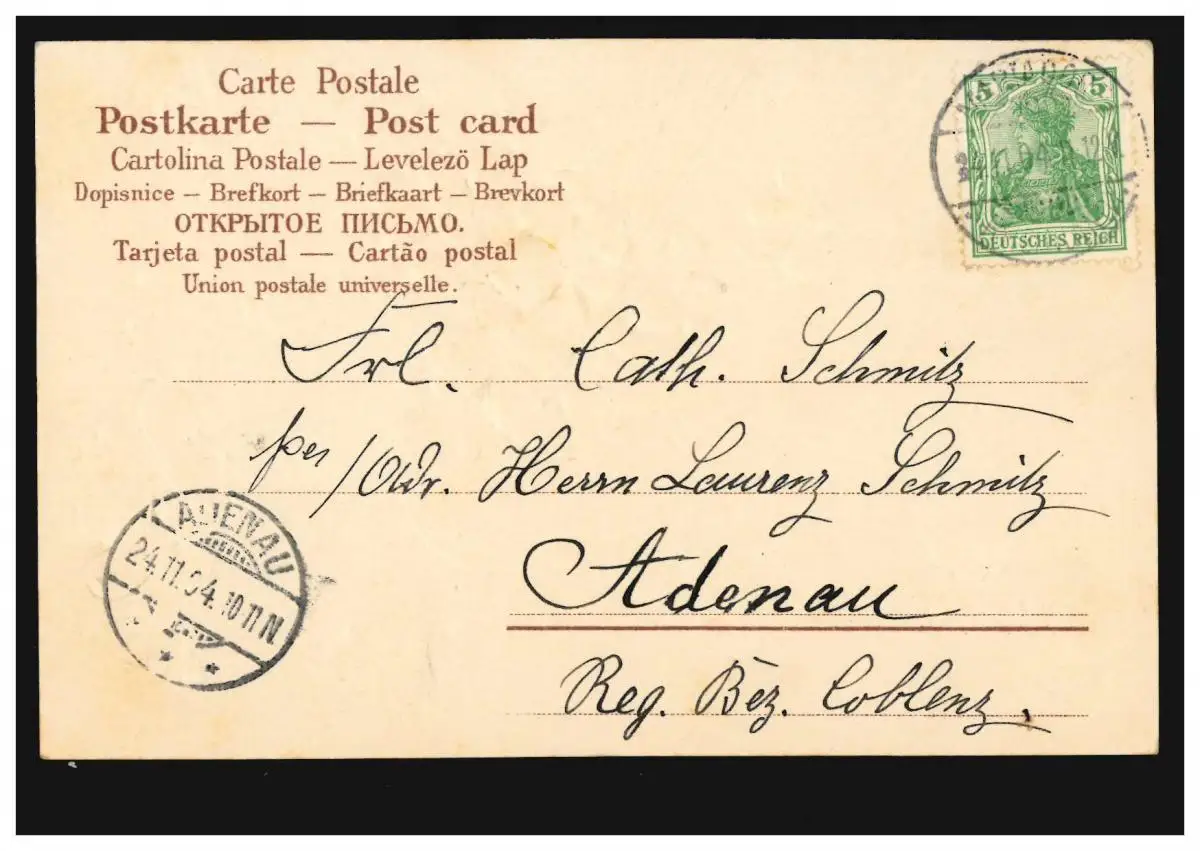 Carte Postale
Postkarte — Post card
Cartolina Postale — Levelező Lap
Dopisnice — Brefkort — Briefkaart — Brevkort
ОТКРЫТОЕ ПИСЬМО.
Tarjeta postal — Cartão postal
Union postale universelle.
5 5
DEUTSCHES REICH
Frl. Cath. Schmitz
per / Adr. Herrn Laurenz Schmitz
Adenau
Reg. Bez. Coblenz.
ADENAU
24.11.04. 10 11 N